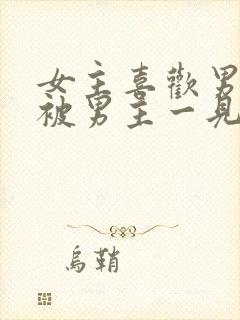 女主喜歡男
被男主一見
烏鞘